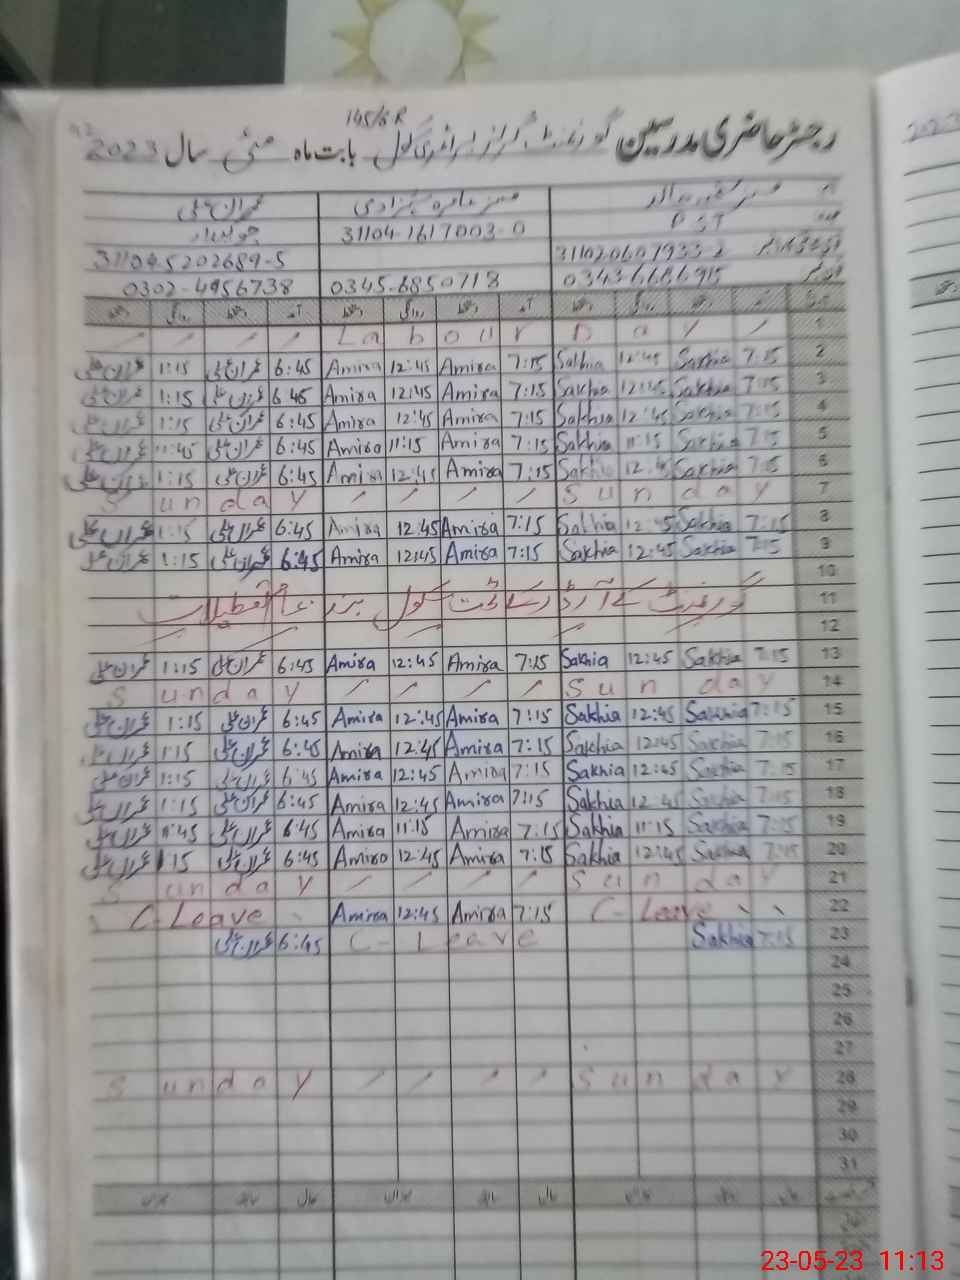 145/6.R
رجسٹر حاضری مدرسین گورنمنٹ گرلز پرائمری سکول بابت ماہ مئی سال 2023
عمران علی
چوکیدار PST
31104-1617003-0
31104-5202689-5 31102-0607933-2
0302-4956738 0345-6850718 0343-6686915
Labour Day 1
عمران علی 1:15 عمران علی 6:45 Amira 12:45 Amira 7:15 Sakhia 12:45 Sakhia 7:15 2
عمران علی 1:15 عمران علی 6 45 Amira 12:45 Amira 7:15 Sakhia 12:45 Sakhia 7:15 3
عمران علی 1:15 عمران علی 6:45 Amira 12:45 Amira 7:15 Sakhia 12:45 Sakhia 7:15 4
عمران علی 11:45 عمران علی 6:45 Amira 11:15 Amira 7:15 Sakhia 11:15 Sakhia 7:15 5
عمران علی 1:15 عمران علی 6:45 Amira 12:45 Amira 7:15 Sakhia 12:45 Sakhia 7:15 6
Sunday Sunday 7
عمران علی 1:15 عمران علی 6:45 Amira 12:45 Amira 7:15 Sakhia 12:45 Sakhia 7:15 8
عمران علی 1:15 عمران علی 6:45 Amira 12:45 Amira 7:15 Sakhia 12:45 Sakhia 7:15 9
10
گورنمنٹ کے آرڈر کے تحت سکول بند عام تعطیلات 11
12
عمران علی 1:15 عمران علی 6:45 Amira 12:45 Amira 7:15 Sakhia 12:45 Sakhia 7:15 13
Sunday Sunday 14
عمران علی 1:15 عمران علی 6:45 Amira 12:45 Amira 7:15 Sakhia 12:45 Sakhia 7:15 15
عمران علی 1:15 عمران علی 6:45 Amira 12:45 Amira 7:15 Sakhia 12:45 Sakhia 7:15 16
عمران علی 1:15 عمران علی 6:45 Amira 12:45 Amira 7:15 Sakhia 12:45 Sakhia 7:15 17
عمران علی 1:15 عمران علی 6:45 Amira 12:45 Amira 7:15 Sakhia 12:45 Sakhia 7:15 18
عمران علی 11:45 عمران علی 6:45 Amira 11:15 Amira 7:15 Sakhia 11:15 Sakhia 7:15 19
عمران علی 1:15 عمران علی 6:45 Amira 12:45 Amira 7:15 Sakhia 12:45 Sakhia 7:15 20
Sunday Sunday 21
C-Leave Amira 12:45 Amira 7:15 C-Leave 22
عمران علی 6:45 C-Leave Sakhia 7:15 23
24
25
26
27
Sunday Sunday 28
29
30
31
23-05-23 11:13